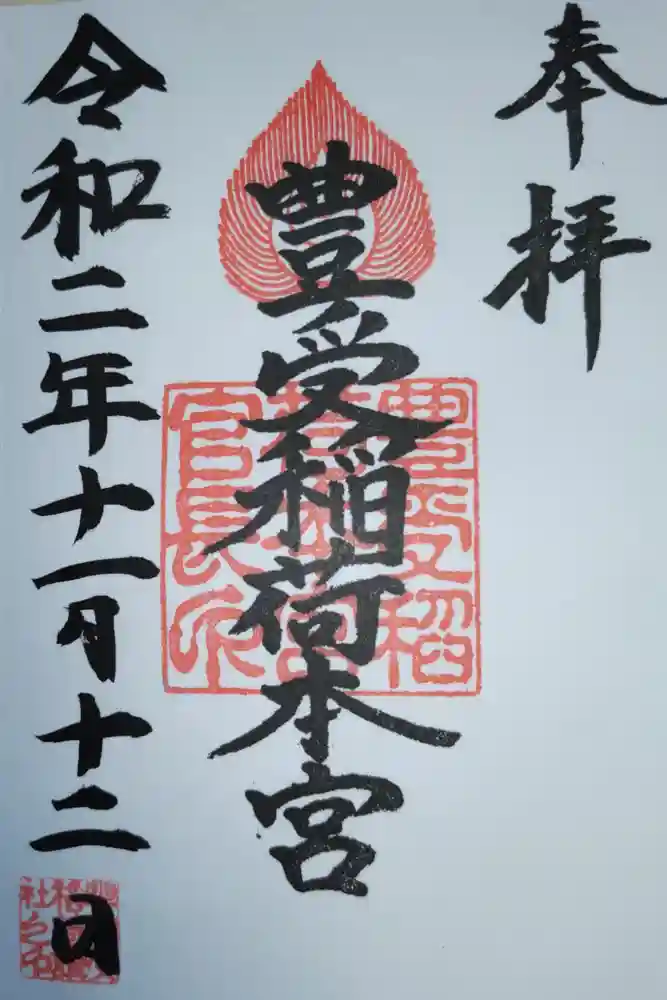 奉拝
豊受稲荷本宮
令和二年十一月十二日